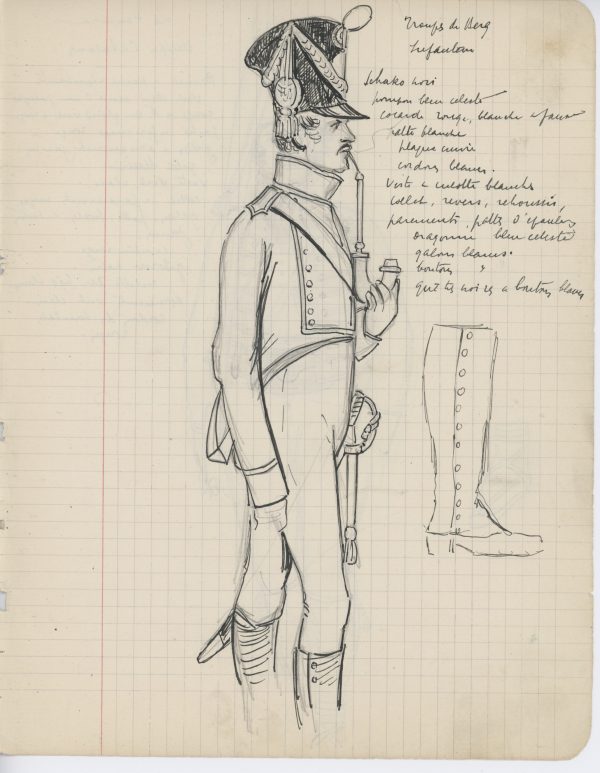 Troups de Berg
Infanterie
Schako noir
pompon bleu celeste
cocarde rouge, blanche
patte blanche
plaque cuivre
cordons blancs.
Veste a culotte blanche
Collet, revers, rehoussis,
parements, pattes d'epaules
dragonne bleu celeste
galons blancs.
boutons "
guêtres noires a boutons blancs